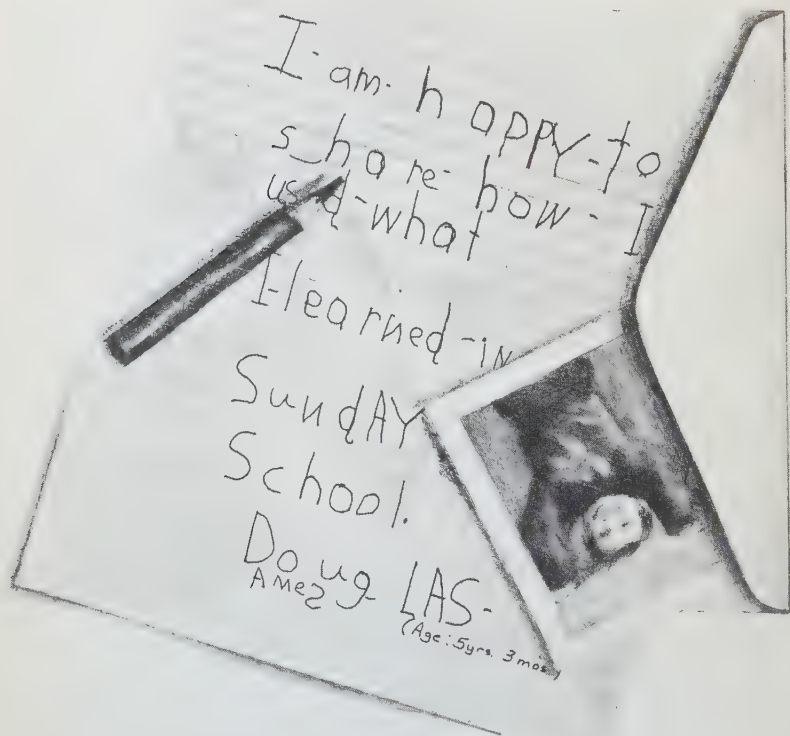 I-am-happy-to
share-how-I
used-what
I-learned-in
SundAY
School.
Doug-LAS-
AMes
(Age: 5yrs. 3mos.)